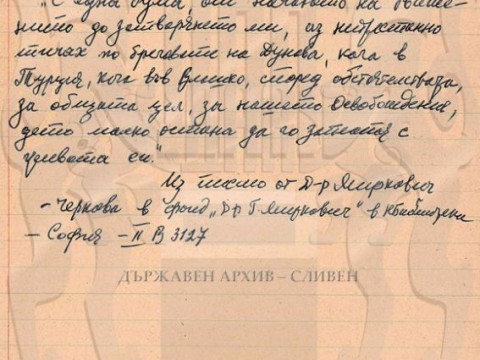 „С една дума, от началото на
нието до затварянето ми, аз непрестанно
тичах по бреговете на Дунава, кога в
Турция, кога във Влашко, според обстоятелствата,
за общата цел, за нашето Освобождение,
дето малко остана да го заплатя с
си."
Из писмо от Д-р Миркович
- Чернова в фонд „Д-р Г. Миркович" в
- София - II В 3127
ДЪРЖАВЕН АРХИВ – СЛИВЕН